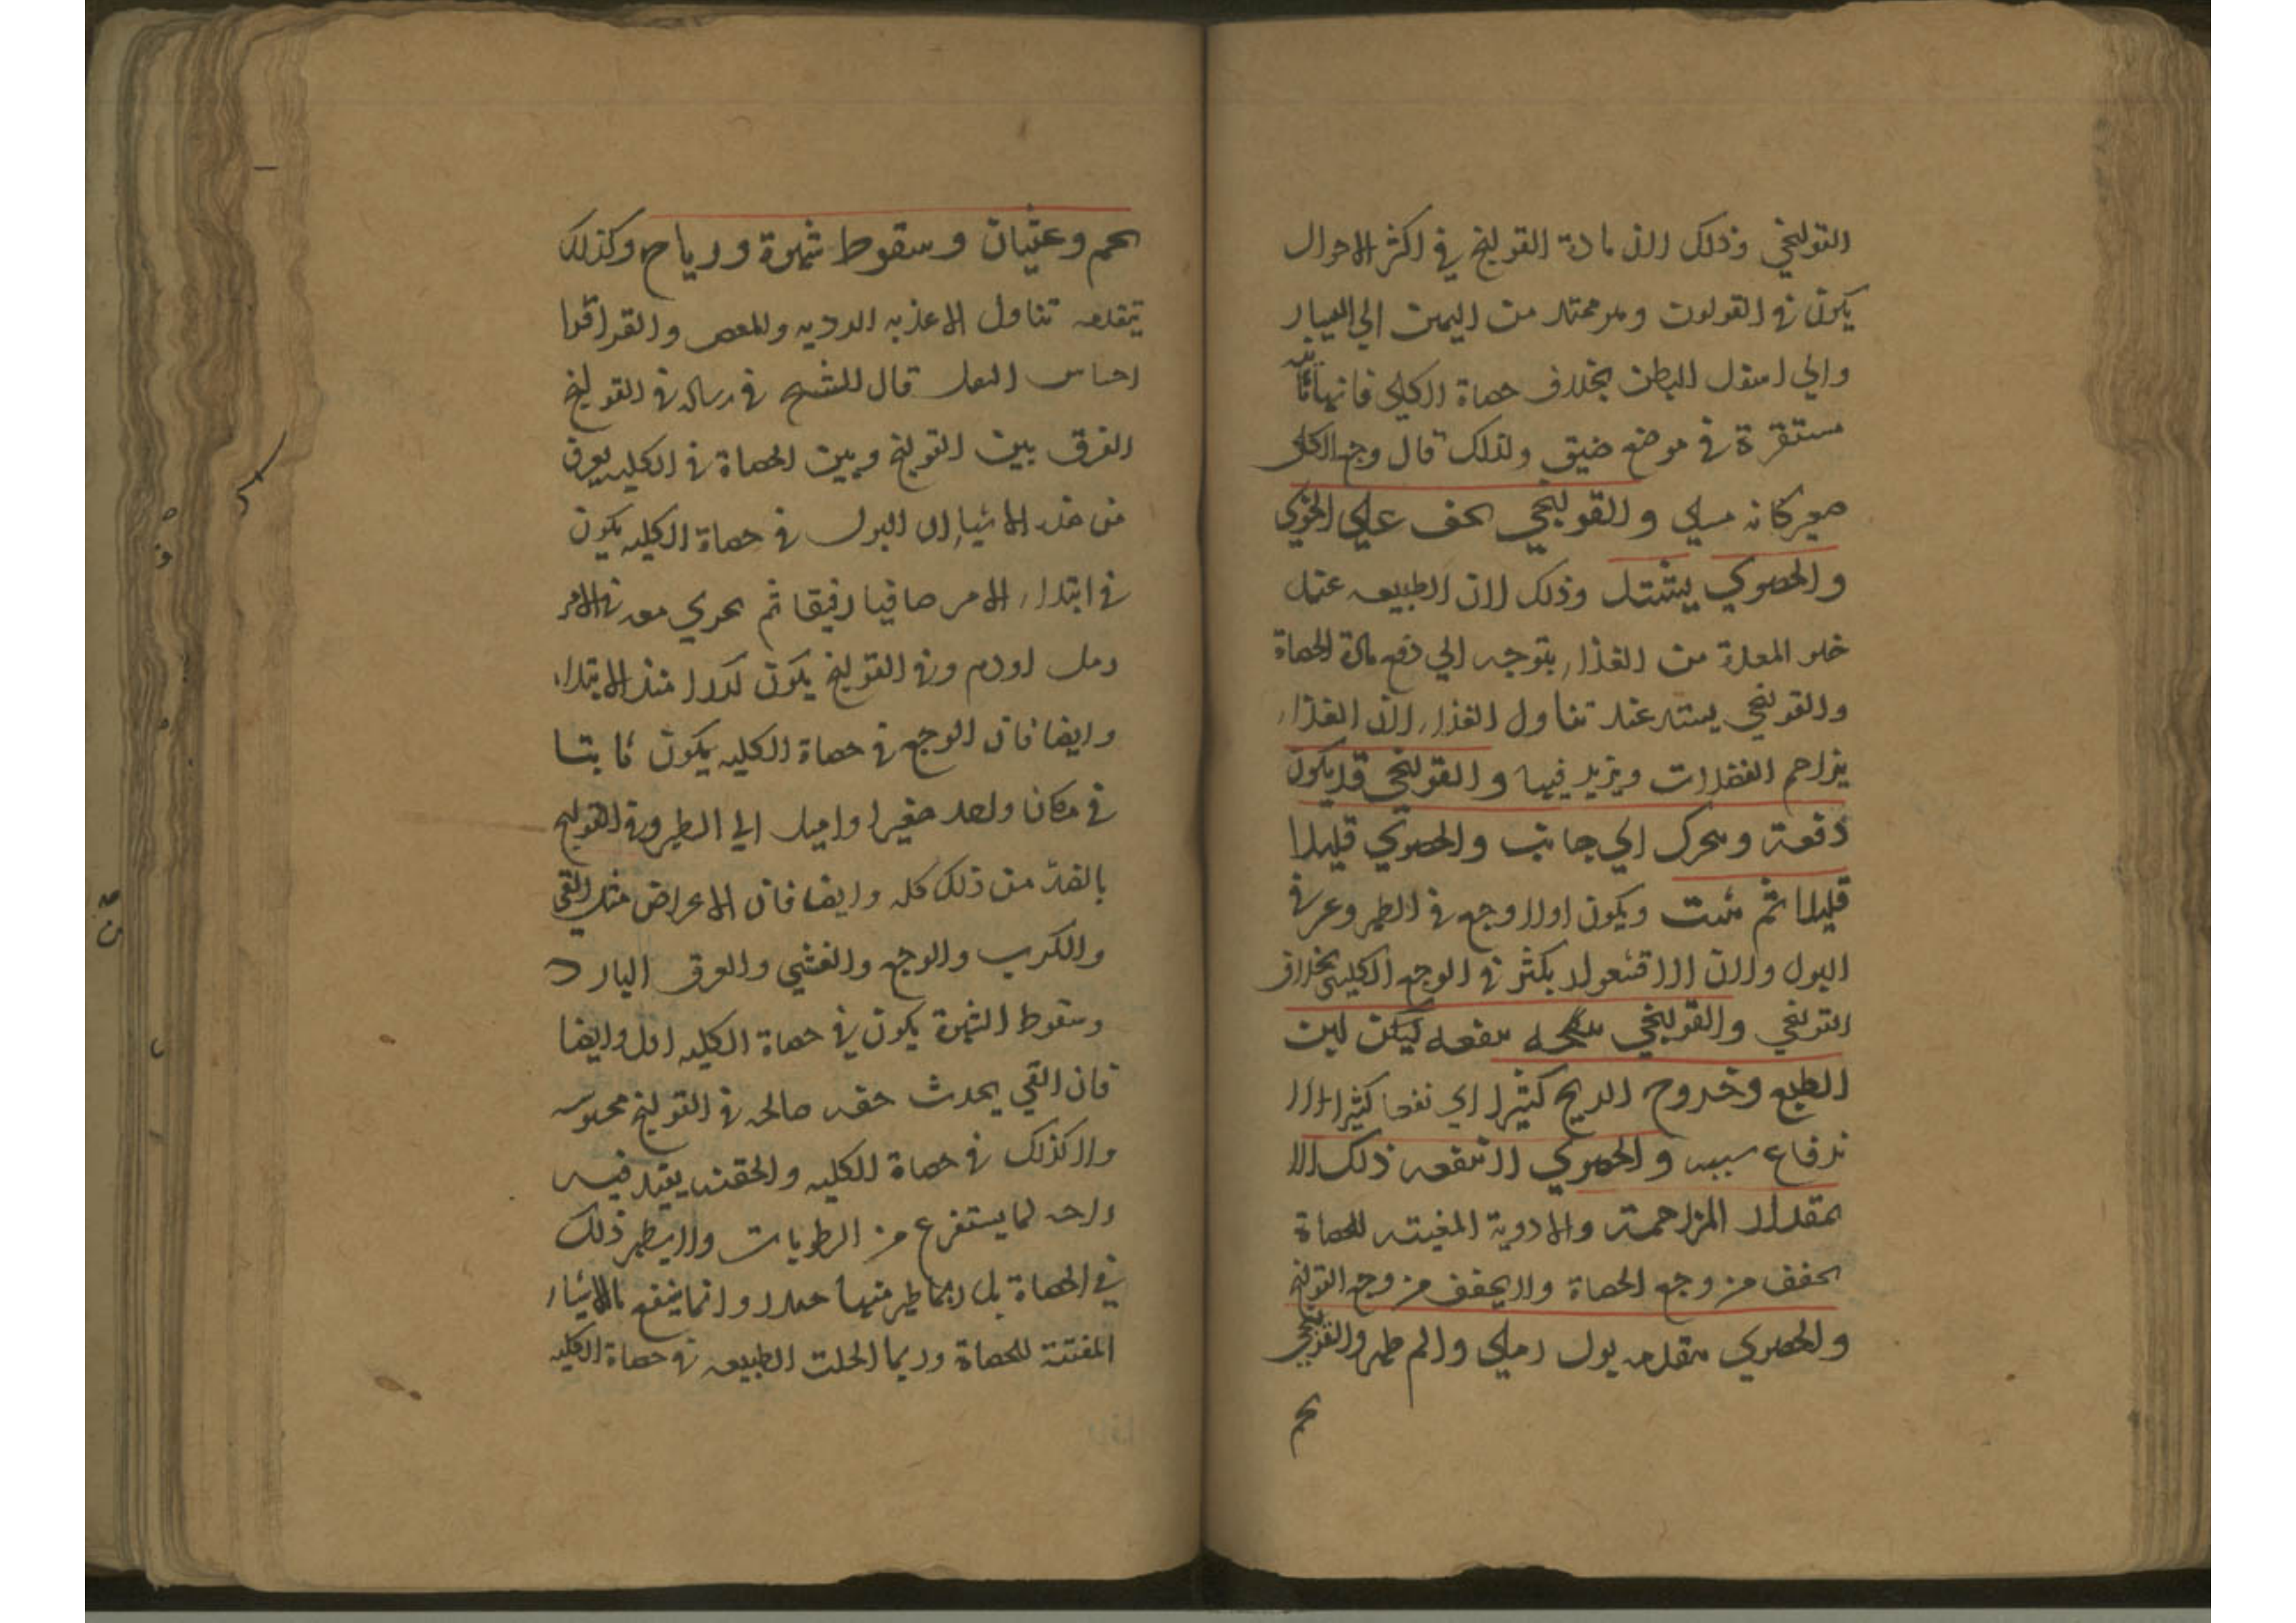 القولنجي وذلك لان مادة القولنج في اكثر الاحوال
يكون في القولون وهو ممتد من اليمين الي اليسار
والي اسفل البطن بخلاف حصاة الكلي فانها
مستقرة في موضع ضيق ولذلك قال وجع الكلي
صغير كانه مسلي والقولنجي يخف علي الخوي
والحصوي يشتد وذلك لان الطبيعه عند
خلو المعدة من الغذاء يتوجه الي دفع مادة الحصاة
والقولنجي يشتد عند تناول الغذاء لان الغذاء
يزاحم الفضلات ويزيد فيها والقولنجي قد يكون
دفعة ويتحرك الي جانب والحصوي قليلا
قليلا ثم يثبت ويكون اولا وجع في الظهر وعسر في
البول ولان الاقشعرار يكثر في الوجع الكليي بخلاف
القولنجي والقولنجي ينفعه لين
الطبع وخروج الريح كثيرا اي نفعا كثيرا لا
ندفاع سببه والحصوي لا ينفعه ذلك الا
بمقدار المزاحمة والادوية المفتته للحصاة
يخفف من وجع الحصاة ولا يخفف من وجع القولنج
والحصوي يتقدمه بول رملي والم ظهر والقولنجي
تخم
تخم وغثيان وسقوط شهوة ورياح وكذلك
يتقدمه تناول الاغذيه الرديه والمغص والقراقر
احتباس الثفل قال الشيخ في رساله في القولنج
الفرق بين القولنج وبين الحصاة في الكليه يعرف
من هذه الاشياء ان البول في حصاة الكليه يكون
في ابتداء الامر صافيا رقيقا ثم يجري معه في الاخر
رمل او دم وفي القولنج يكون كدرا منذ الابتداء
وايضا فان الوجع في حصاة الكليه يكون ثابتا
في مكان واحد صغيرا واميل الي الظهر وفي القولنج
بالضد من ذلك كله وايضا فان الاعراض مثل القي
والكرب والوجع والغشي والعرق البارد
وسقوط الشهوة يكون في حصاة الكليه اقل وايضا
فان القي يحدث خفه صالحه في القولنج محسوسه
ولا كذلك في حصاة الكليه والحقنه يفيد فيه
راحه لما يستفرغ من الرطوبات ولا يظهر ذلك
في الحصاة بل ربما ظهر منها ضررا وانما ينتفع بالاشياء
المفتتة للحصاة وربما انحلت الطبيعه في حصاة الكليه